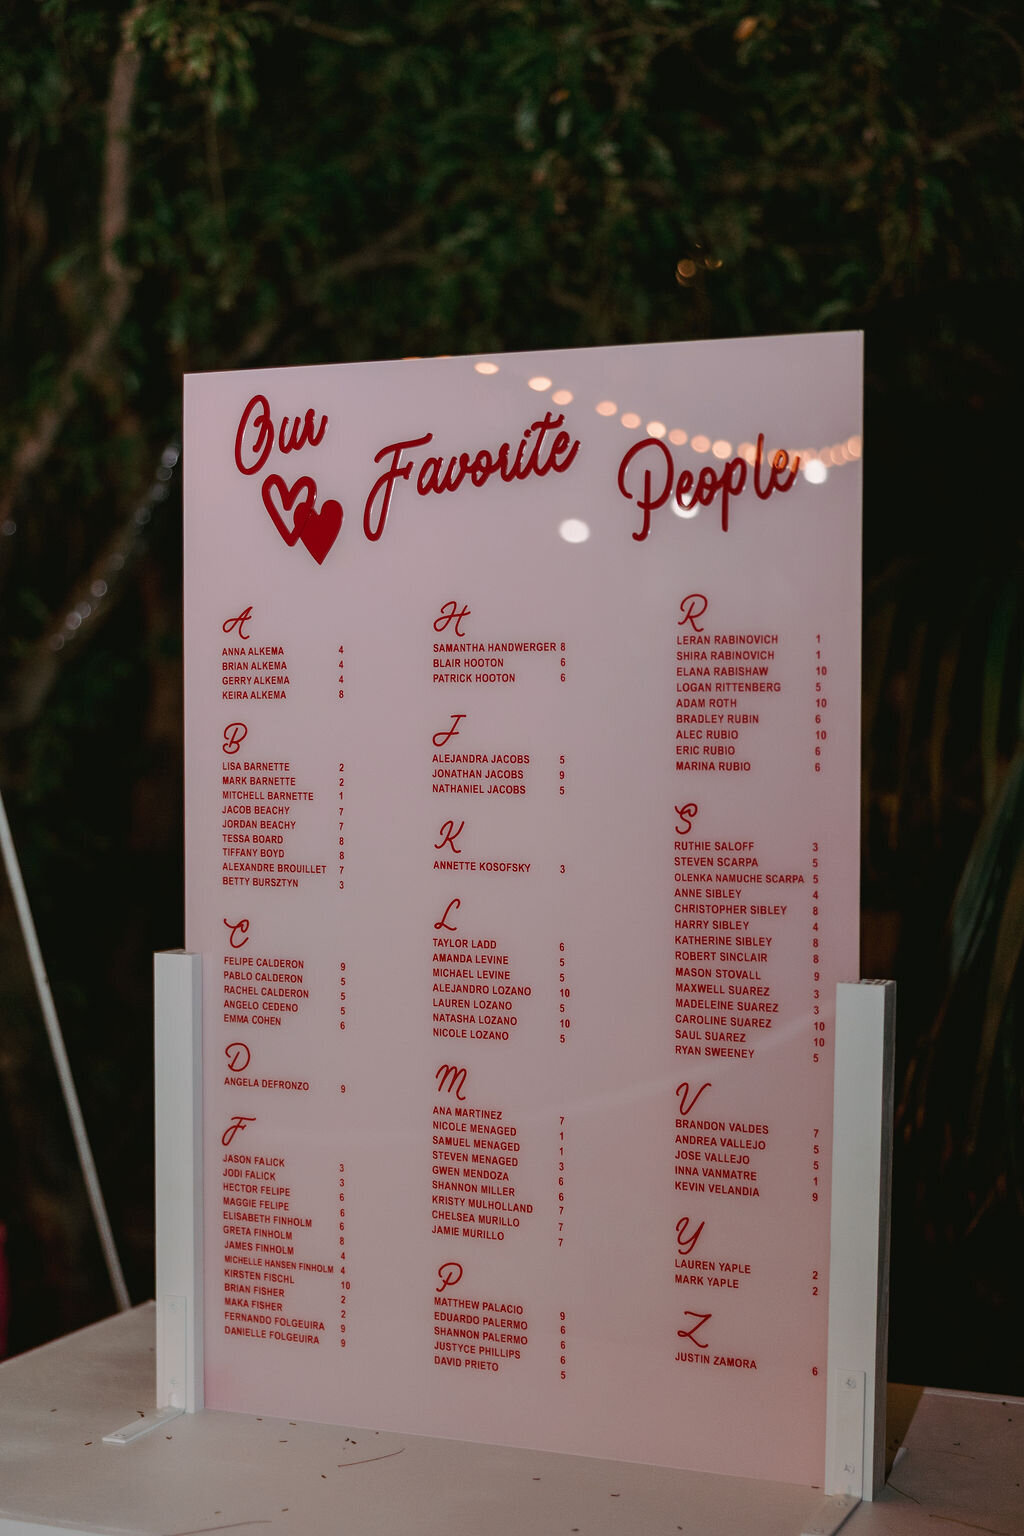 Our Favorite People
A
ANNA ALKEMA 4
BRIAN ALKEMA 4
GERRY ALKEMA 4
KEIRA ALKEMA 8
B
LISA BARNETTE 2
MARK BARNETTE 2
MITCHELL BARNETTE 1
JACOB BEACHY 7
JORDAN BEACHY 7
TESSA BOARD 8
TIFFANY BOYD 8
ALEXANDRE BROUILLET 7
BETTY BURSZTYN 3
C
FELIPE CALDERON 9
PABLO CALDERON 5
RACHEL CALDERON 5
ANGELO CEDENO 5
EMMA COHEN 6
D
ANGELA DEFRONZO 9
F
JASON FALICK 3
JODI FALICK 3
HECTOR FELIPE 6
MAGGIE FELIPE 6
ELISABETH FINHOLM 6
GRETA FINHOLM 8
JAMES FINHOLM 4
MICHELLE HANSEN FINHOLM 4
KIRSTEN FISCHL 10
BRIAN FISHER 2
MAKA FISHER 2
FERNANDO FOLGEUIRA 9
DANIELLE FOLGEUIRA 9
H
SAMANTHA HANDWERGER 8
BLAIR HOOTON 6
PATRICK HOOTON 6
J
ALEJANDRA JACOBS 5
JONATHAN JACOBS 9
NATHANIEL JACOBS 5
K
ANNETTE KOSOFSKY 3
L
TAYLOR LADD 6
AMANDA LEVINE 5
MICHAEL LEVINE 5
ALEJANDRO LOZANO 10
LAUREN LOZANO 5
NATASHA LOZANO 10
NICOLE LOZANO 5
M
ANA MARTINEZ 7
NICOLE MENAGED 1
SAMUEL MENAGED 1
STEVEN MENAGED 3
GWEN MENDOZA 6
SHANNON MILLER 6
KRISTY MULHOLLAND 7
CHELSEA MURILLO 7
JAMIE MURILLO 7
P
MATTHEW PALACIO 9
EDUARDO PALERMO 6
SHANNON PALERMO 6
JUSTYCE PHILLIPS 6
DAVID PRIETO 5
R
LERAN RABINOVICH 1
SHIRA RABINOVICH 1
ELANA RABISHAW 10
LOGAN RITTENBERG 5
ADAM ROTH 10
BRADLEY RUBIN 6
ALEC RUBIO 10
ERIC RUBIO 6
MARINA RUBIO 6
S
RUTHIE SALOFF 3
STEVEN SCARPA 5
OLENKA NAMUCHE SCARPA 5
ANNE SIBLEY 4
CHRISTOPHER SIBLEY 8
HARRY SIBLEY 4
KATHERINE SIBLEY 8
ROBERT SINCLAIR 8
MASON STOVALL 9
MAXWELL SUAREZ 3
MADELEINE SUAREZ 3
CAROLINE SUAREZ 10
SAUL SUAREZ 10
RYAN SWEENEY 5
V
BRANDON VALDES 7
ANDREA VALLEJO 5
JOSE VALLEJO 5
INNA VANMATRE 1
KEVIN VELANDIA 9
Y
LAUREN YAPLE 2
MARK YAPLE 2
Z
JUSTIN ZAMORA 6